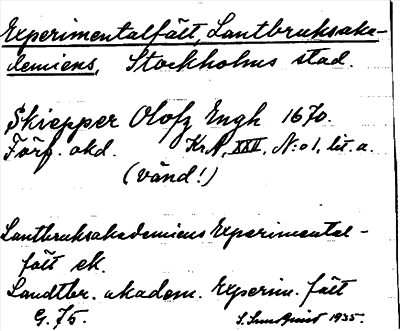 Experimentalfält, Lantbruksaka-
demiens, Stockholms stad.
Skiepper Olofz Engh 1670.
Förf. okd. KrA, XXV, N:o 1, lit. a.
(vänd!)
Lantbruksakademiens Experimental-
fält ek.
Landtbr. akadem. Experim. fält
G. 75.
S. Sundquist 1935.